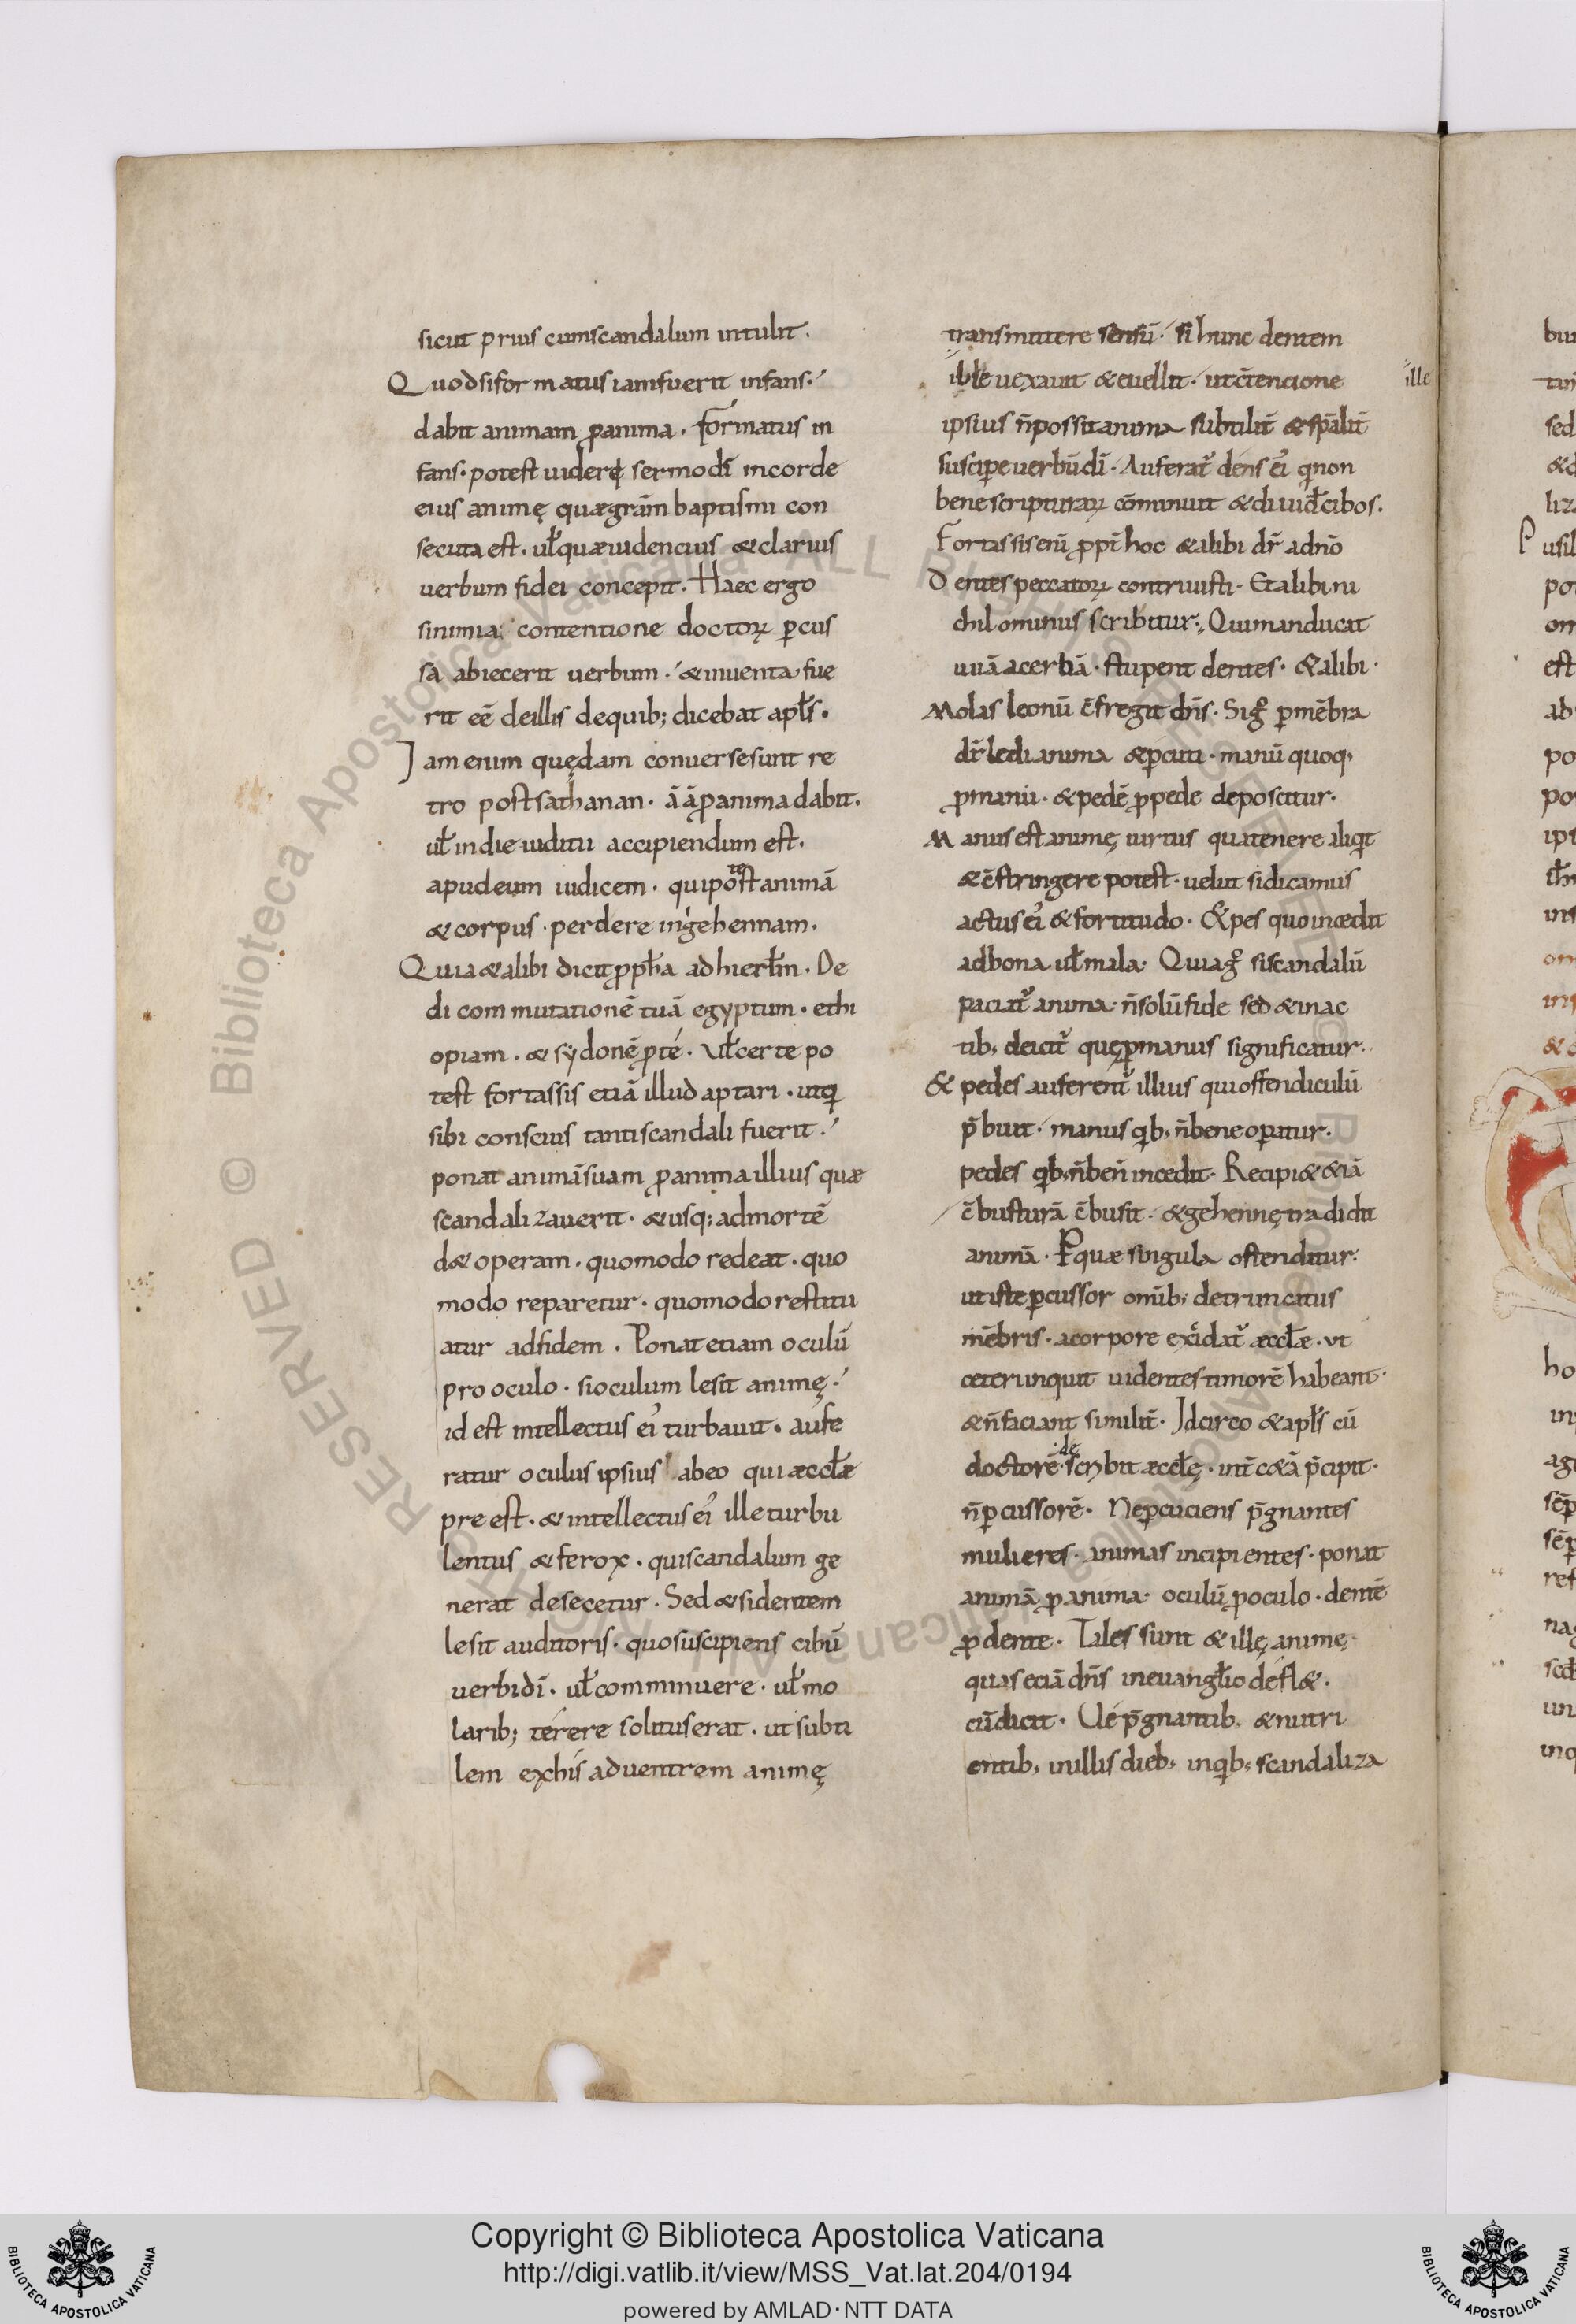 sicut prius cumscandalum intulit.
Quodsiformatus iamfuerit infans.
dabit animam ꝓanima. formatus in
fans. potest uideri sermodī incorde
eius animę quægrām baptismi con
secuta est. uƚquæuidencius &clarius
uerbum fidei concepit. Haec ergo
sinimia contentione doctoꝝ ꝑcus
sa abiecerit uerbum. &inuenta fue
rit eē deillis dequib; dicebat apƚs.
Iam enim quędam conuersesunt re
tro postsathanan. āāꝓanimadabit.
uƚ indieiuditii accipiendum est.
apudeum iudicem. quipotest animā
&corpus. perdere ingehennam.
Quia&alibi dicitꝓpħa adhierƚm. De
di commutationē tuā egyptum. ethi
opiam. & sydonē ꝓte. Uƚcerte po
test fortassis etiā illud aptari. utꝗ
sibi conscius tantiscandali fuerit.
ponat animāsuam ꝓanimaillius quæ
scandalizauerit. &usq; admortē
d& operam. quomodo redeat. quo
modo reparetur. quomodorestitu
atur adfidem. Ponatetiam oculū
prooculo. sioculum lesit animę.
id est intellectus ei turbauit. aufe
ratur oculus ipsius abeo qui æccƚæ
pre est. & intellectus ei ille turbu
lentus &ferox. quiscandalum ge
nerat desecetur. Sed &sidentem
lesit auditoris. quosuscipiens cibū
uerbidī. uƚcomminuere. uƚmo
larib; terere solituserat. ut subti
lem exhis aduentrem animę
transmittere sensū. si hunc dentem
ille uexauit &euellit. utc̄tencione
ille
ipsius n̄possitanima subtilit̄ &sp̄alit̄
susciꝑeuerbūdī. Auferat dens ei ꝗnon
benescripturaꝝ cōminuit &diuid̄cibos.
Fortassisenī ꝓpt̄hoc &alibi dr̄ adnō
Dentespeccatoꝝ contriuisti. Etalibi ni
chilominus scribitur; Quimanducat
uuā acerbā. stupent dentes. &alibi.
Molas leonū c̄fregit dn̄s. Sigͦ ꝑmēbra
dr̄ ledi anima &ꝑcuti. manū quoq;
ꝓmanu. &pedē ꝓpede deposcitur.
Manus est animę uirtus quatenere aliꝗt
&c̄stringere potest. uelut sidicamus
actus ei &fortitudo. &pes quoincedit
adbona uƚmala. Quiagͦ siscandalū
paciat anima. n̄solūfide sed &inac
tib; deicit quęꝑmanus significatur.
& pedes auferent illius qui offendiculū
p̄buit. manus ꝗb; n̄beneoꝑatur.
pedes ꝗb; n̄ben̄ incedit. Recipi& &iā
c̄busturā c̄busit. &gehennętradidit
animā. Ꝑquæ singula ostenditur.
utisteꝑcussor omīb; detruncatus
mēbris. acorpore excidat æccƚæ. ut
ceteri inquit uidentes timorē habeant.
&n̄faciant similit̄. Idcirco &apƚs cū
doctorē. de
scribit æccƚę. int̄ c&ā p̄cipit.
n̄ꝑcussorē. Neꝑcuciens p̄gnantes
mulieres. animas incipientes. ponat
animā ꝓanima. oculū ꝓoculo. dentē
ꝓdente. Tales sunt & illę animę
quas eciā dn̄s ineuangƚio defl&.
cūdicit. Ue p̄gnantib; &nutri
entib; inillis dieb; inꝗb; scandaliza
Copyright © Biblioteca Apostolica Vaticana
http://digi.vatlib.it/view/MSS_Vat.lat.204/0194
powered by AMLAD·NTT DATA
BIBLIOTECA APOSTOLICA VATICANA
BIBLIOTECA APOSTOLICA VATICANA